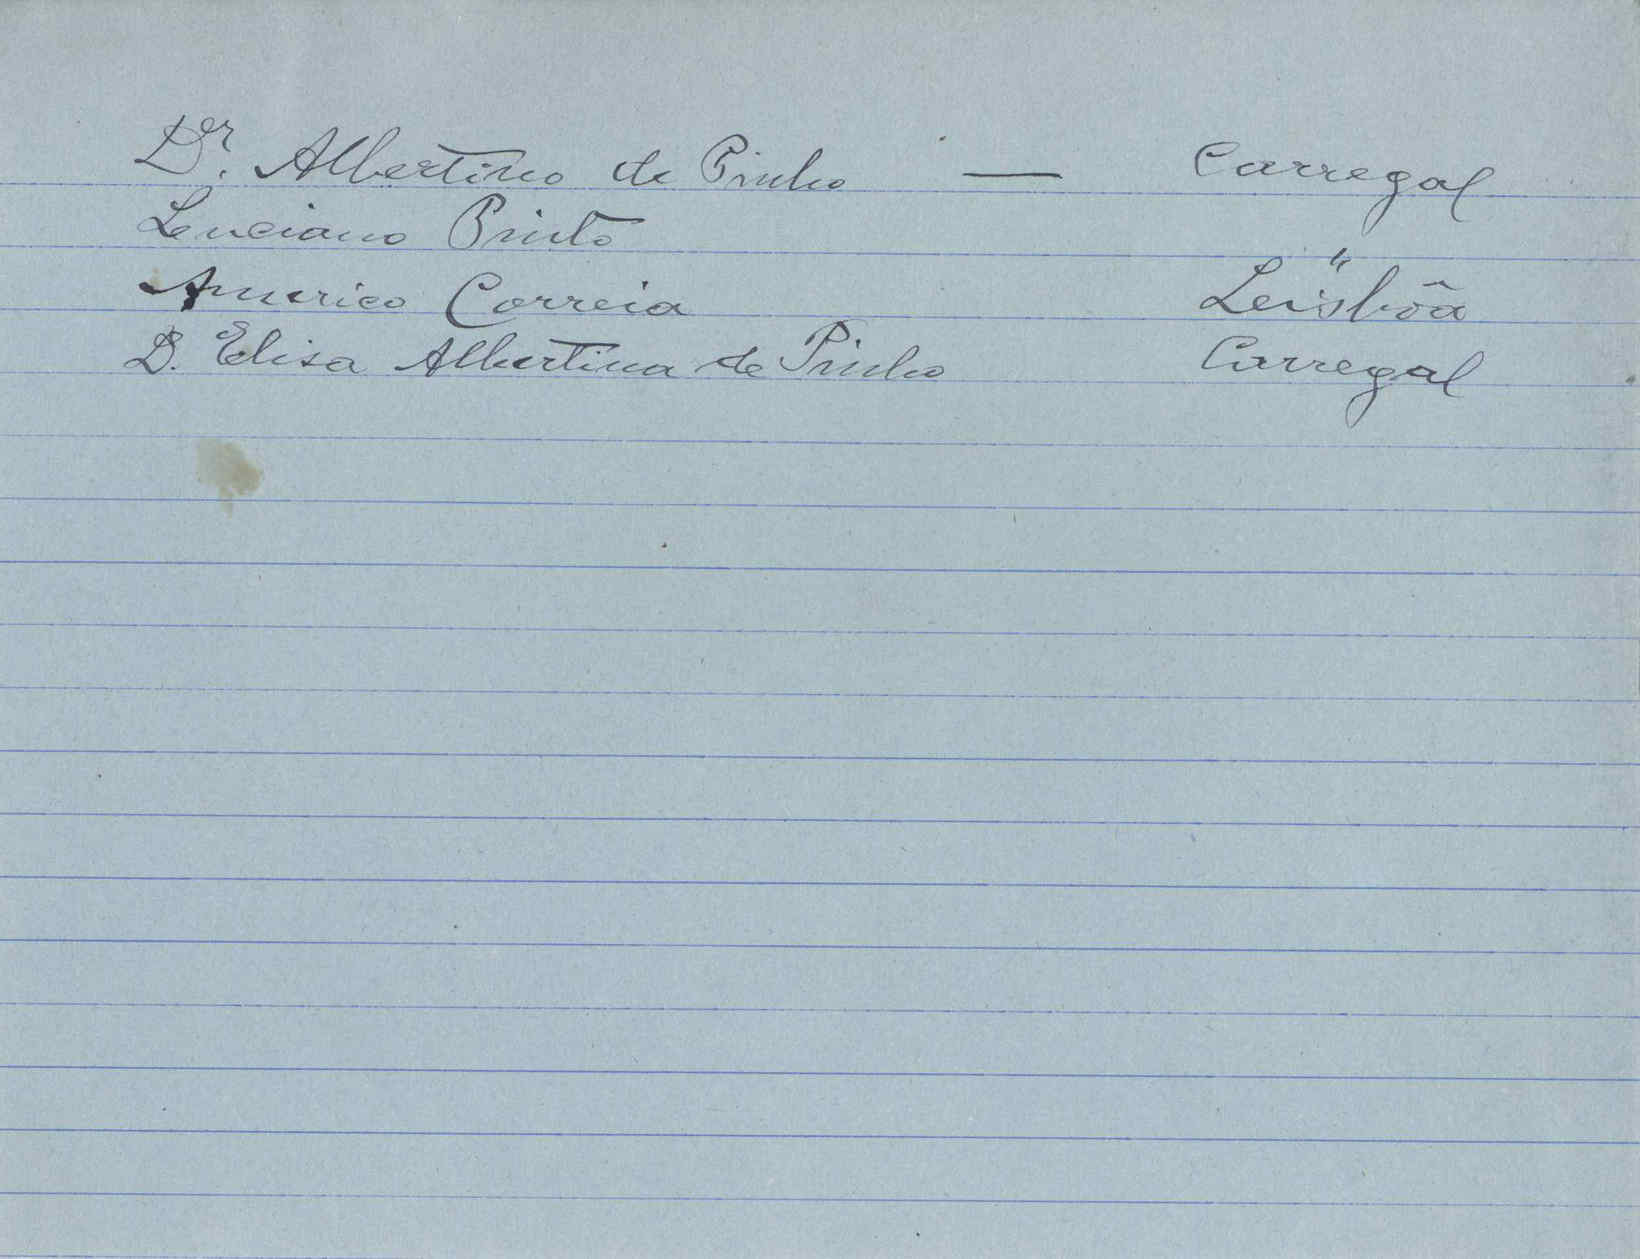 Dr. Albertino de Pinho — Carregal
Luciano Pinto "
Americo Correia Lisbôa
D. Elisa Albertina de Pinho Carregal